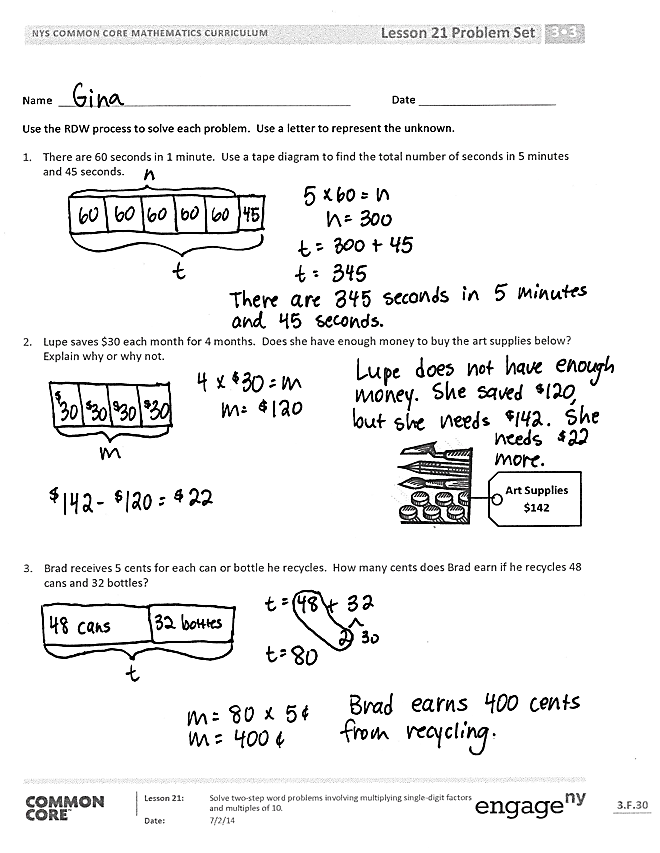 NYS COMMON CORE MATHEMATICS CURRICULUM Lesson 21 Problem Set 3•3
Name Gina Date
Use the RDW process to solve each problem. Use a letter to represent the unknown.
1. There are 60 seconds in 1 minute. Use a tape diagram to find the total number of seconds in 5 minutes
and 45 seconds.
n
60 60 60 60 60 45
t
5 × 60 = n
n = 300
t = 300 + 45
t = 345
There are 345 seconds in 5 minutes
and 45 seconds.
2. Lupe saves $30 each month for 4 months. Does she have enough money to buy the art supplies below?
Explain why or why not.
$30 $30 $30 $30
m
4 × $30 = m
m = $120
$142 - $120 = $22
Lupe does not have enough
money. She saved $120,
but she needs $142. She
needs $22
more.
Art Supplies
$142
3. Brad receives 5 cents for each can or bottle he recycles. How many cents does Brad earn if he recycles 48
cans and 32 bottles?
48 cans 32 bottles
t
t = 48 + 32
2 30
t = 80
m = 80 × 5¢
m = 400¢
Brad earns 400 cents
from recycling.
COMMON
CORE™
Lesson 21: Solve two-step word problems involving multiplying single-digit factors
and multiples of 10.
Date: 7/2/14
engageny
3.F.30